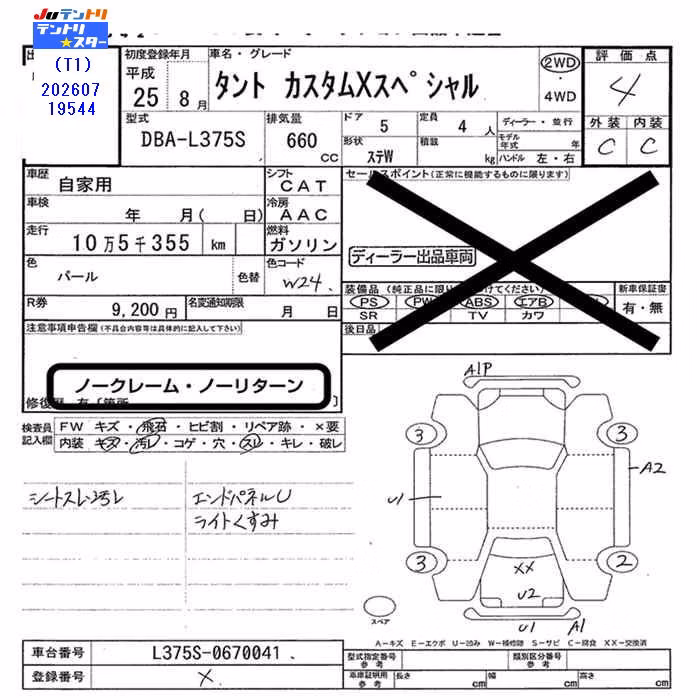 Juテントリ
テントリ
★スター
(T1)
202607
19544
初度登録年月
平成
25年 8月
車名・グレード
タント カスタムXスペシャル
2WD
・
4WD
評価点
4
外装 内装
C C
型式
DBA-L375S
排気量
660 CC
ドア 5
定員 4 人
形状 ステW
積載 kg
ディーラー・並行
モデル年式 年
ハンドル 左・右
車歴 自家用
シフト CAT
車検 年 月( 日)
冷房 AAC
走行 10万5千355 km
燃料 ガソリン
色 パール 色替
色コード W24
R券 9,200円
名変通知期限 月 日
セールスポイント(正常に機能するものに限ります)
ディーラー出品車両
装備品
PS PW ABS エアB
SR TV カワ
新車保証書
有・無
後日品
注意事項申告欄(不具合内容等は具体的に記入して下さい)
ノークレーム・ノーリターン
検査員記入欄
FW キズ・飛石・ヒビ割・リペア跡・×要
内装 キズ・汚レ・コゲ・穴・スレ・キレ・破レ
シートスレ・汚レ
エンドパネルU
ライトくすみ
A1P
3 3
A2
U1
3 2
XX
U2
U1 A1
スペア
A-キズ E-エクボ U-凹み W-補修跡 S-サビ C-腐食 XX-交換済
車台番号 L375S-0670041
登録番号 ×
型式指定番号 参考
類別区分番号 参考
車庫証明用 参考
長さ cm 幅 cm 高さ cm